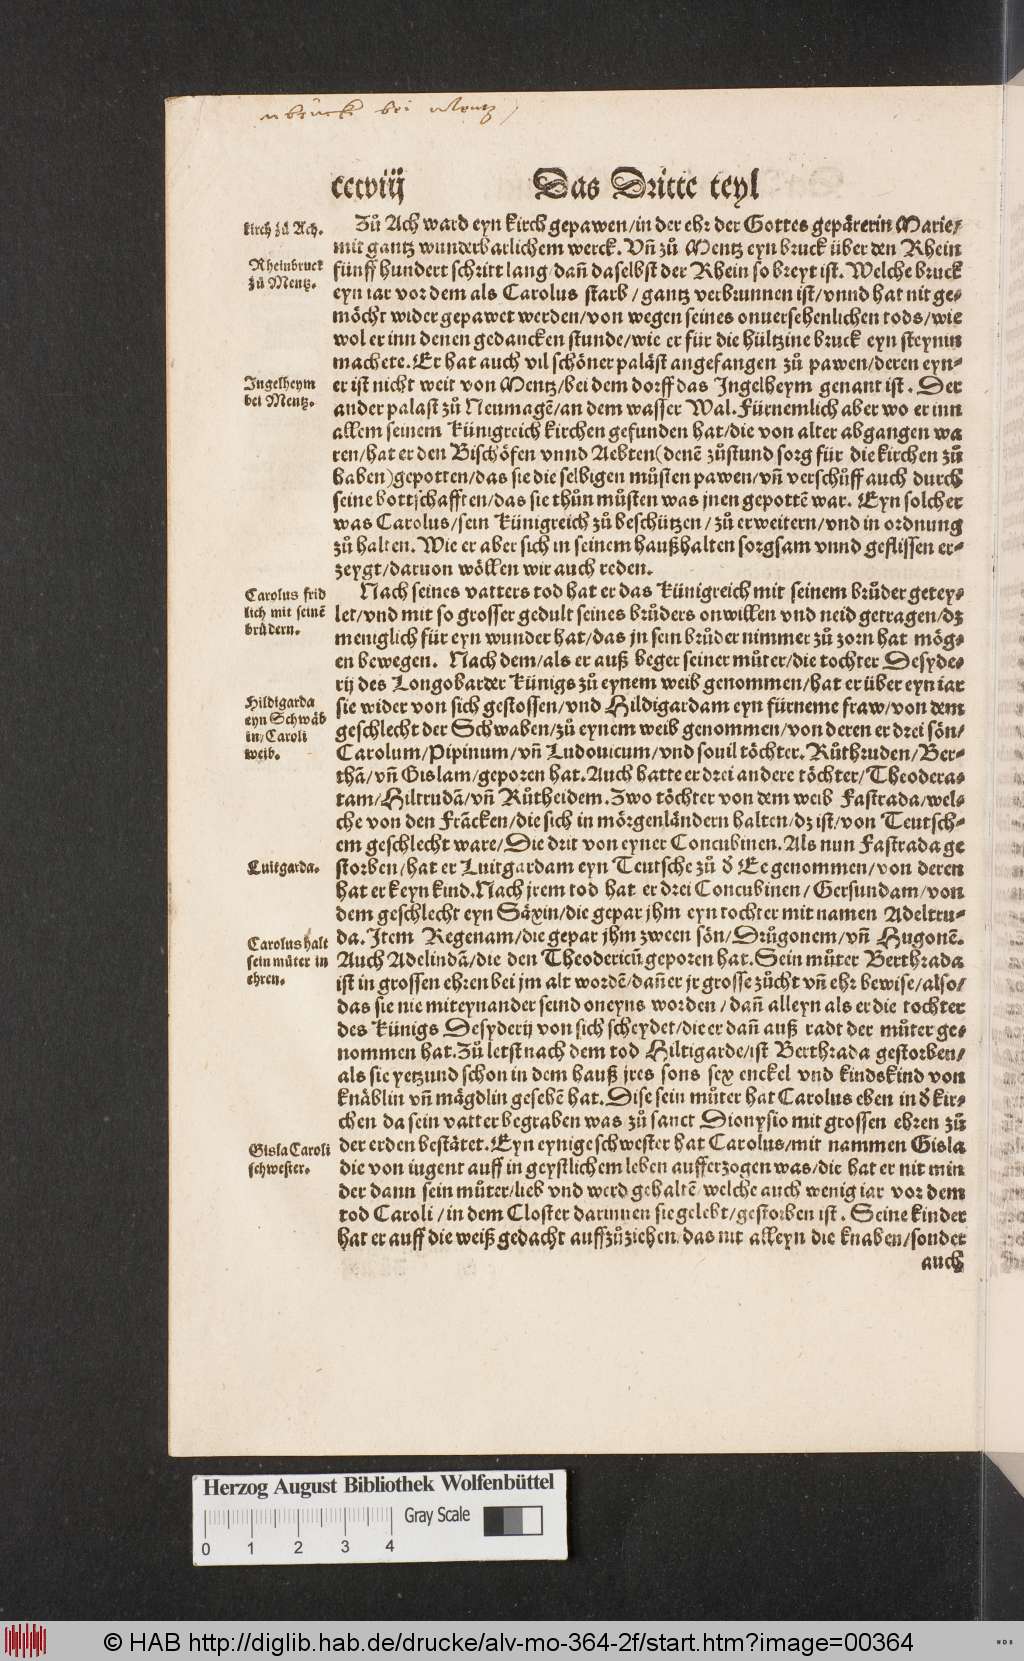 bruck bei Mentz
cccviij Das Dritte teyl
kirch zů Ach.
Rheinbruck
zů Mentz.
Ingelheym
bei Mentz.
Carolus frid
lich mit seinẽ
brůdern.
Hildigarda
eyn Schwäb
in/Caroli
weib.
Luitgarda.
Carolus halt
sein můter in
ehren.
Gisla Caroli
schwester.
Zů Ach ward eyn kirch gepawen/in der ehr der Gottes gepärerin Marie/
mit gantz wunderbarlichem werck. Vñ zů Mentz eyn bruck über den Rhein
fünff hundert schritt lang/dañ daselbst der Rhein so breyt ist. Welche bruck
eyn iar vor dem als Carolus starb/gantz verbrunnen ist/vnnd hat nit ge-
möcht wider gepawet werden/von wegen seines onuersehenlichen tods/wie
wol er inn denen gedancken stunde/wie er für die hültzine bruck eyn steynin
machete. Er hat auch vil schöner paläst angefangen zů pawen/deren eyn-
er ist nicht weit von Mentz/bei dem dorff das Ingelheym genant ist. Der
ander palast zů Neumagẽ/an dem wasser Wal. Fürnemlich aber wo er inn
allem seinem Künigreich kirchen gefunden hat/die von alter abgangen wa
ren/hat er den Bischöfen vnnd Aebten(denẽ zůstund sorg für die kirchen zů
haben)gepotten/das sie die selbigen můsten pawen/vñ verschůff auch durch
seine bottschafften/das sie thůn můsten was jnen gepottẽ war. Eyn solcher
was Carolus/sein Künigreich zů beschützen/zů erweitern/vnd in ordnung
zů halten. Wie er aber sich in seinem haußhalten sorgsam vnnd geflissen er-
zeygt/daruon wöllen wir auch reden.
Nach seines vatters tod hat er das Künigreich mit seinem brůder getey-
let/vnd mit so grosser gedult seines brůders onwillen vnd neid getragen/dz
meniglich für eyn wunder hat/das jn sein brůder nimmer zů zorn hat mög-
en bewegen. Nach dem/als er auß beger seiner můter/die tochter Desyde-
rij des Longobarder Künigs zů eynem weib genommen/hat er über eyn iar
sie wider von sich gestossen/vnd Hildigardam eyn fürneme fraw/von dem
geschlecht der Schwaben/zů eynem weib genommen/von deren er drei sön/
Carolum/Pipinum/vñ Ludouicum/vnd souil töchter. Růthruden/Ber-
thã/vñ Gislam/geporen hat. Auch hatte er drei andere töchter/Theodera-
tam/Hiltrudã/vñ Růtheidem. Zwo töchter von dem weib Fastrada/wel-
che von den Frãcken/die sich in mörgenländern halten/dz ist/von Teutsch-
em geschlecht ware/Die drit von eyner Concubinen. Als nun Fastrada ge
storben/hat er Luitgardam eyn Teutsche zů ð Ee genommen/von deren
hat er keyn kind. Nach jrem tod hat er drei Concubinen/Gersundam/von
dem geschlecht eyn Säxin/die gepar jhm eyn tochter mit namen Adeltru-
da. Item Regenam/die gepar jhm zween sön/Drůgonem/vñ Hugonẽ.
Auch Adelindã/die den Theodericũ geporen hat. Sein můter Berthrada
ist in grossen ehren bei jm alt wordẽ/dañ er jr grosse zůcht vñ ehr bewise/also/
das sie nie miteynander seind oneyns worden/dañ alleyn als er die tochter
des Künigs Desyderij von sich scheydet/die er dañ auß radt der můter ge-
nommen hat. Zů letst nach dem tod Hiltigarde/ist Berthrada gestorben/
als sie yetzund schon in dem hauß jres sons sex enckel vnd kindskind von
knäblin vñ mägdlin gesehẽ hat. Dise sein můter hat Carolus eben in ð kir-
chen da sein vatter begraben was zů sanct Dionysio mit grossen ehren zů
der erden bestätet. Eyn eynige schwester hat Carolus/mit nammen Gisla
die von iugent auff in geystlichem leben aufferzogen was/die hat er nit min
der dann sein můter/lieb vnd werd gehaltẽ/welche auch wenig iar vor dem
tod Caroli/in dem Closter darinnen sie gelebt/gestorben ist. Seine kinder
hat er auff die weiß gedacht auffzůziehen/das nit alleyn die knaben/sonder
auch
Herzog August Bibliothek Wolfenbüttel
0 1 2 3 4
Gray Scale
© HAB http://diglib.hab.de/drucke/alv-mo-364-2f/start.htm?image=00364